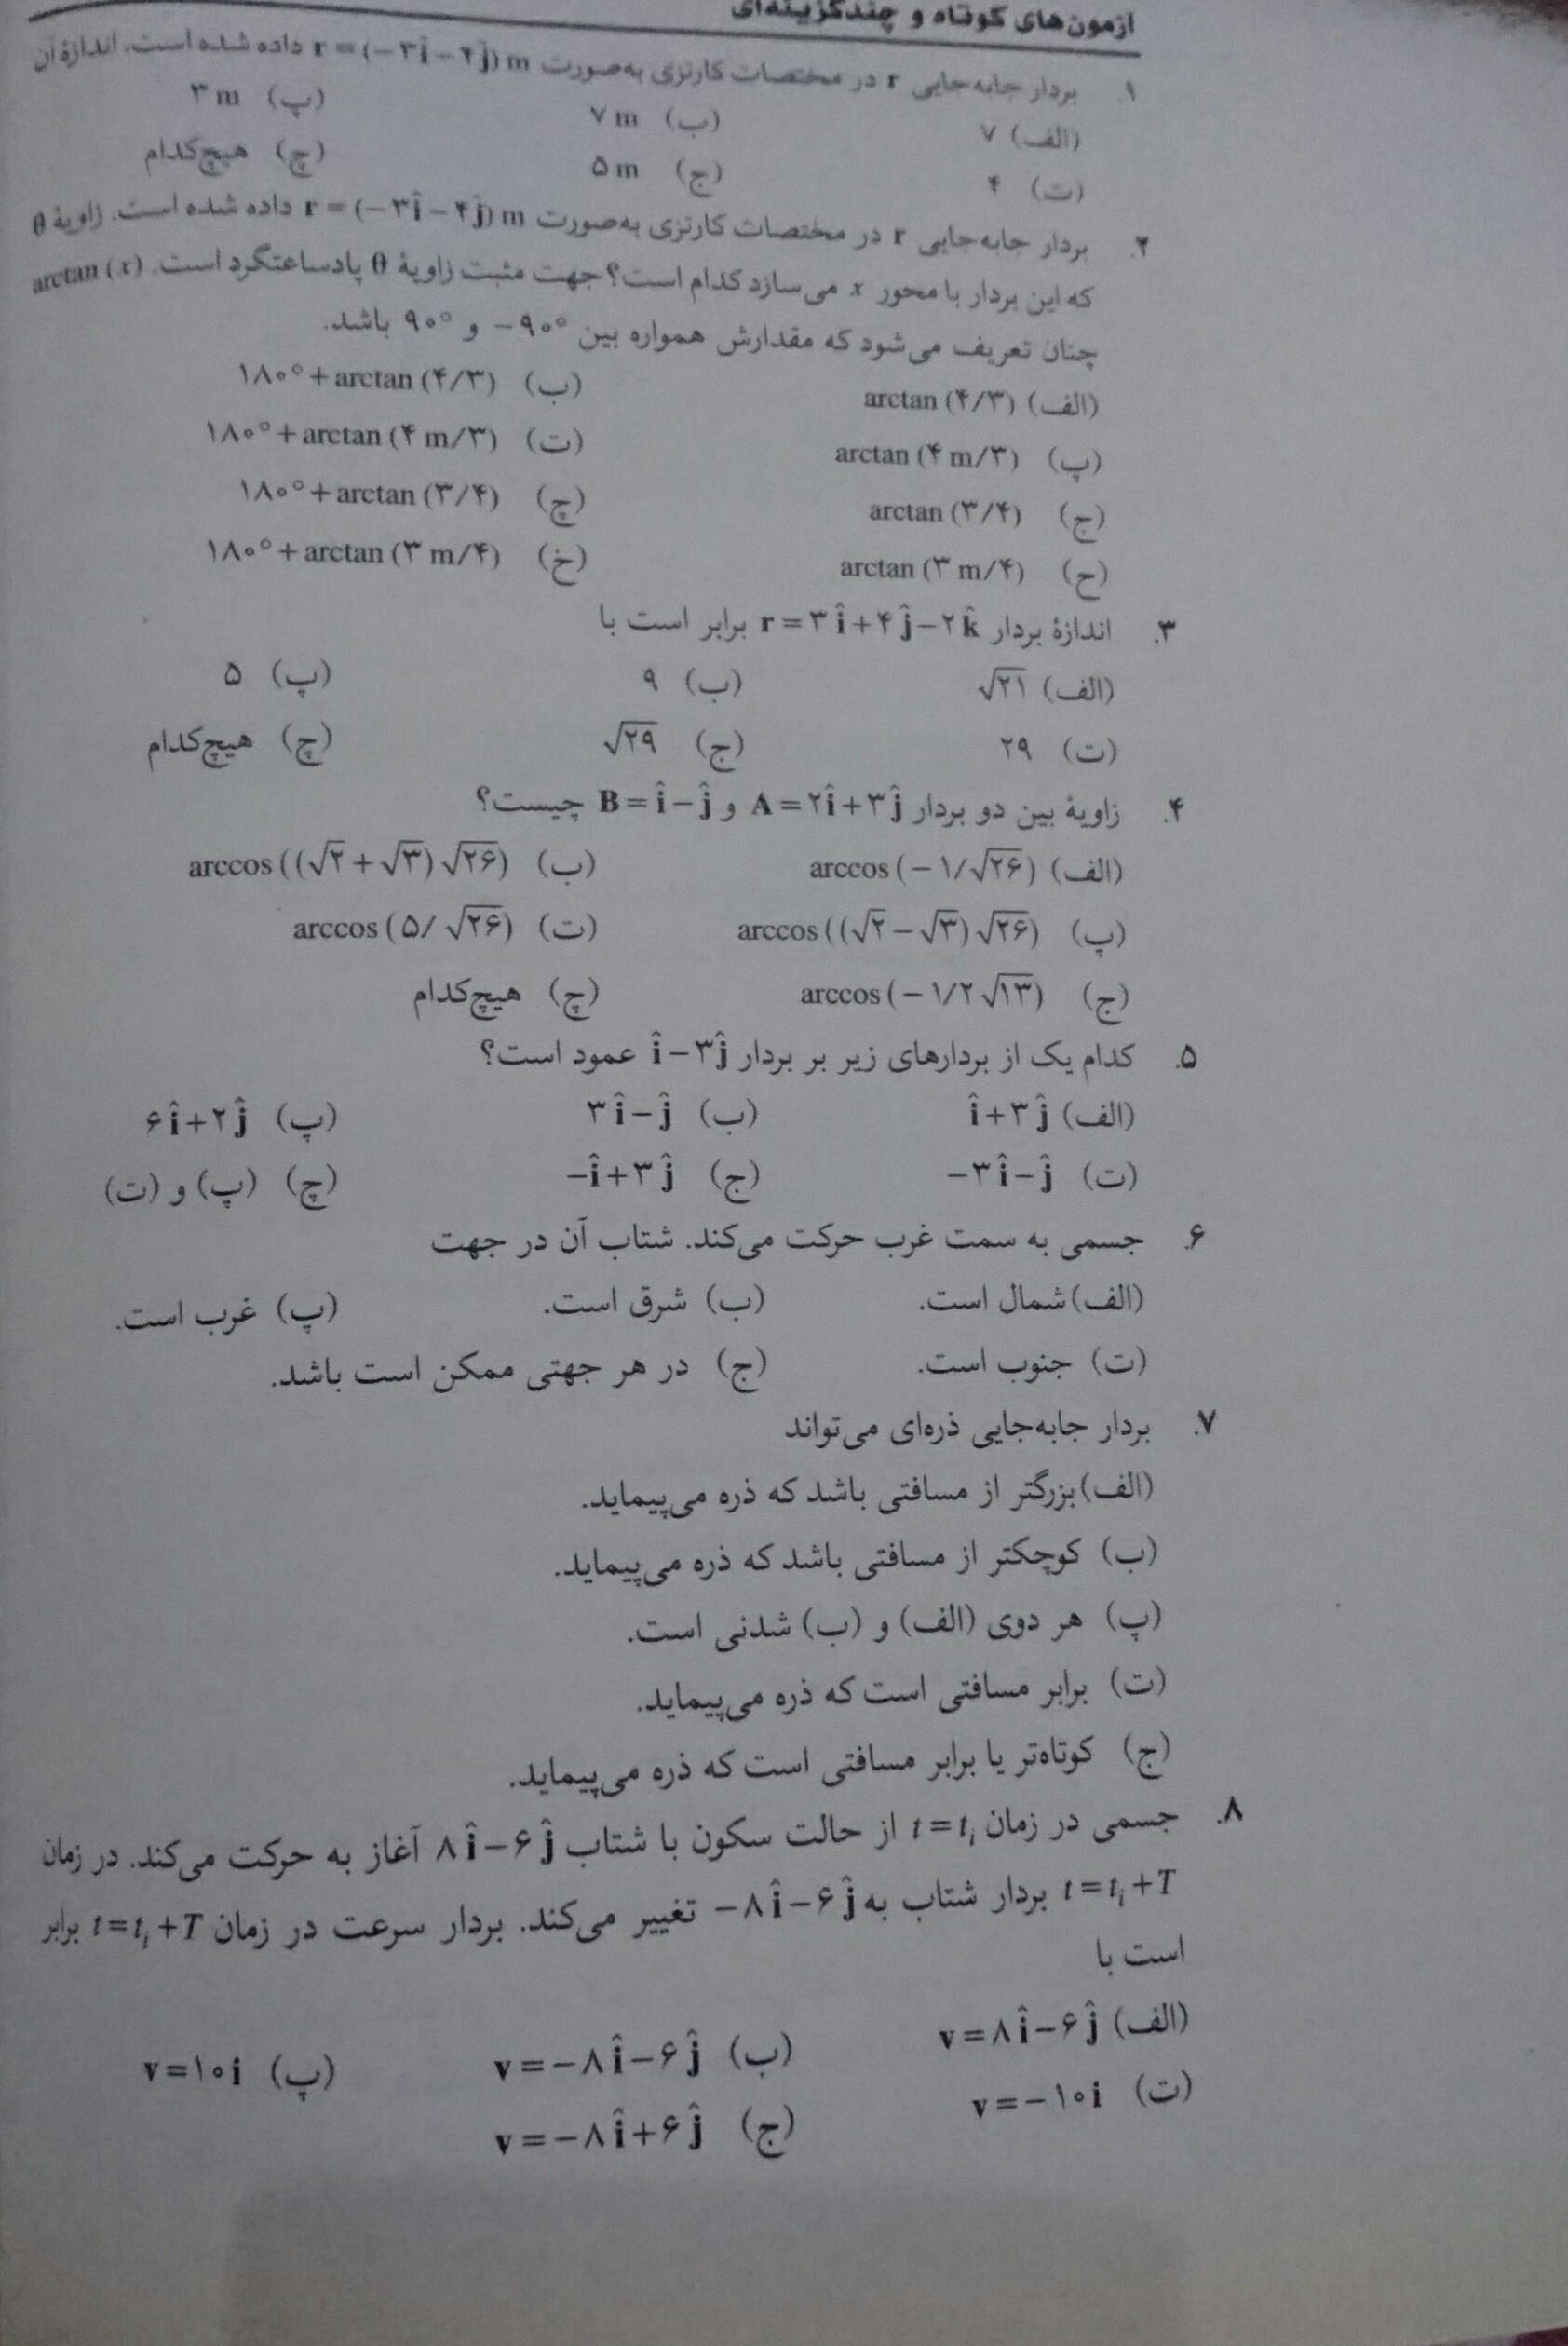 آزمون‌های کوتاه و چندگزینه‌ای
۱. بردار جابه‌جایی r در مختصات کارتزی به‌صورت r = (−۳î − ۴ĵ) m داده شده است. اندازهٔ آن
(الف) ۷ (ب) ۷ m (پ) ۳ m
(ت) ۴ (ج) ۵ m (چ) هیچ‌کدام
۲. بردار جابه‌جایی r در مختصات کارتزی به‌صورت r = (−۳î − ۴ĵ) m داده شده است. زاویهٔ θ
که این بردار با محور x می‌سازد کدام است؟ جهت مثبت زاویهٔ θ پادساعتگرد است. arctan (x)
چنان تعریف می‌شود که مقدارش همواره بین −۹۰° و ۹۰° باشد.
(الف) arctan (۴/۳) (ب) ۱۸۰° + arctan (۴/۳)
(پ) arctan (۴ m/۳) (ت) ۱۸۰° + arctan (۴ m/۳)
(ج) arctan (۳/۴) (چ) ۱۸۰° + arctan (۳/۴)
(ح) arctan (۳ m/۴) (خ) ۱۸۰° + arctan (۳ m/۴)
۳. اندازهٔ بردار r = ۳î + ۴ĵ − ۲k̂ برابر است با
(الف) √۲۱ (ب) ۹ (پ) ۵
(ت) ۲۹ (ج) √۲۹ (چ) هیچ‌کدام
۴. زاویهٔ بین دو بردار A = ۲î + ۳ĵ و B = î − ĵ چیست؟
(الف) arccos (−۱/√۲۶) (ب) arccos ((√۲ + √۳) √۲۶)
(پ) arccos ((√۲ − √۳) √۲۶) (ت) arccos (۵/√۲۶)
(ج) arccos (−۱/۲√۱۳) (چ) هیچ‌کدام
۵. کدام یک از بردارهای زیر بر بردار î − ۳ĵ عمود است؟
(الف) î + ۳ĵ (ب) ۳î − ĵ (پ) ۶î + ۲ĵ
(ت) −۳î − ĵ (ج) −î + ۳ĵ (چ) (پ) و (ت)
۶. جسمی به سمت غرب حرکت می‌کند. شتاب آن در جهت
(الف) شمال است. (ب) شرق است. (پ) غرب است.
(ت) جنوب است. (ج) در هر جهتی ممکن است باشد.
۷. بردار جابه‌جایی ذره‌ای می‌تواند
(الف) بزرگتر از مسافتی باشد که ذره می‌پیماید.
(ب) کوچکتر از مسافتی باشد که ذره می‌پیماید.
(پ) هر دوی (الف) و (ب) شدنی است.
(ت) برابر مسافتی است که ذره می‌پیماید.
(ج) کوتاه‌تر یا برابر مسافتی است که ذره می‌پیماید.
۸. جسمی در زمان t = tᵢ از حالت سکون با شتاب ۸î − ۶ĵ آغاز به حرکت می‌کند. در زمان
t = tᵢ + T بردار شتاب به −۸î − ۶ĵ تغییر می‌کند. بردار سرعت در زمان t = tᵢ + T برابر
است با
(الف) v = ۸î − ۶ĵ (ب) v = −۸î − ۶ĵ (پ) v = ۱۰i
(ت) v = −۱۰i (ج) v = −۸î + ۶ĵ